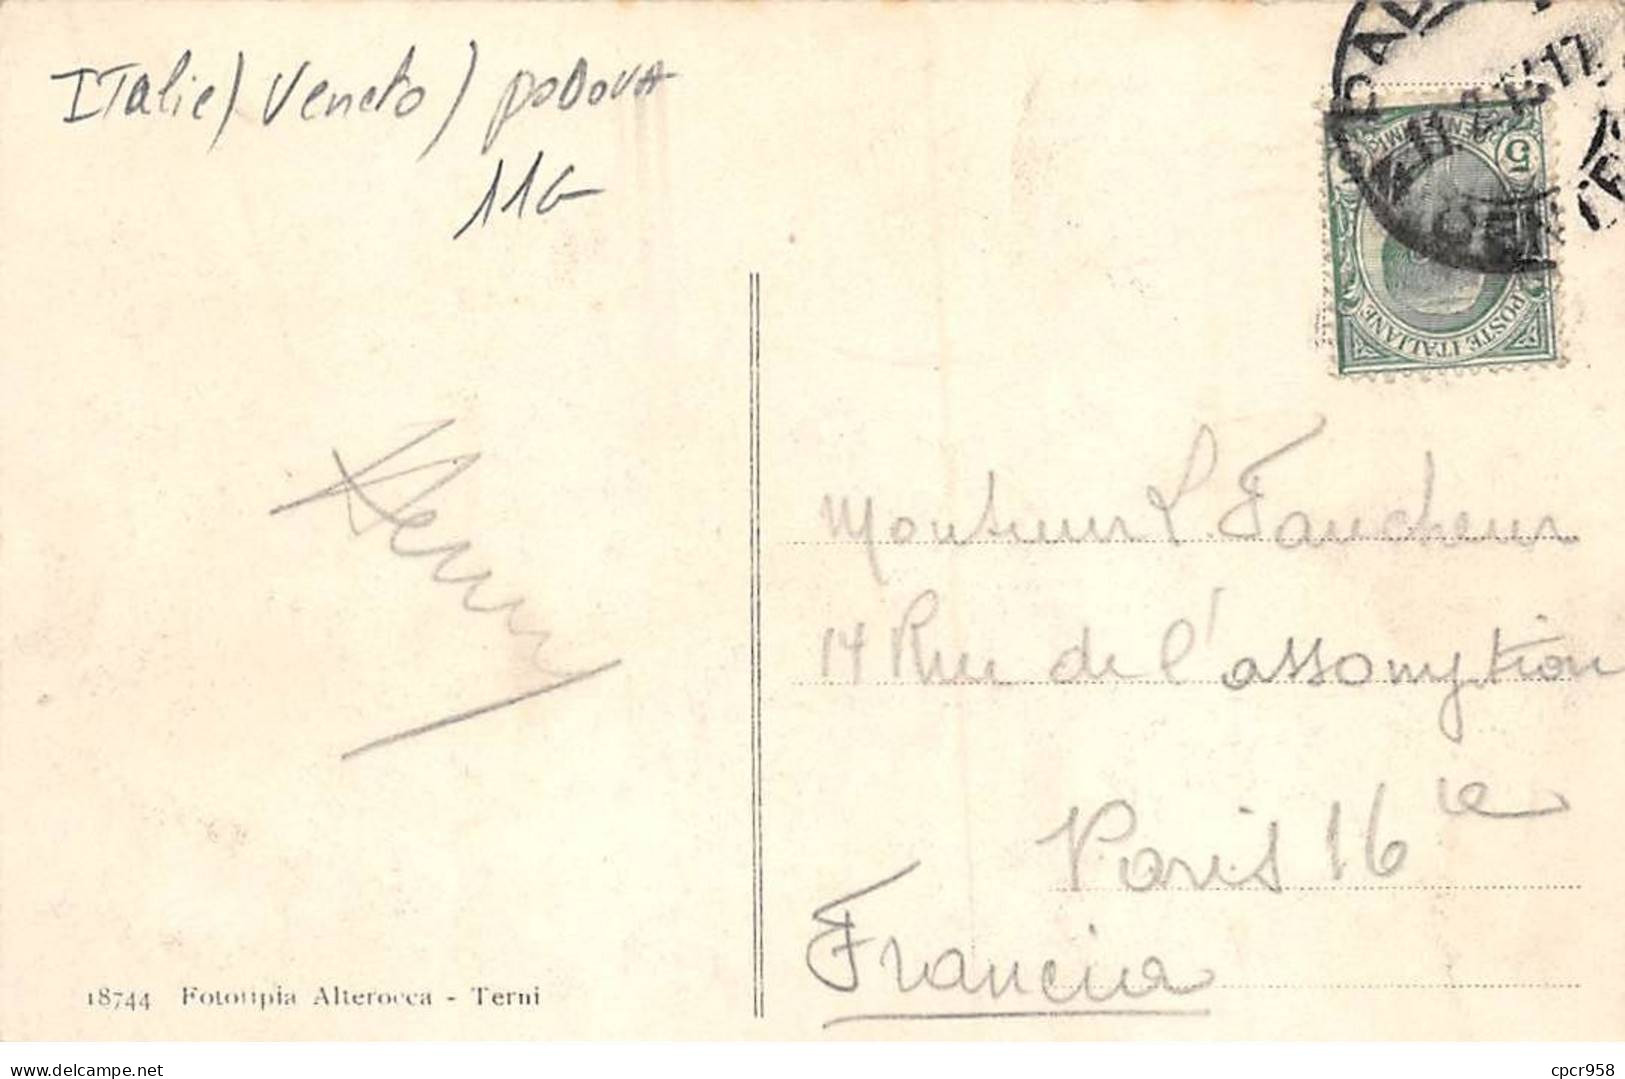 ITalie) Veneto) PODOVA
11G
5
POSTE ITALIANE
Henry
Monsieur L. Faucheur
14 Rue de l'assomption
Paris 16 ie
Francia
18744 Fototipia Alterocca - Terni
Delcampe.net
cpcr958